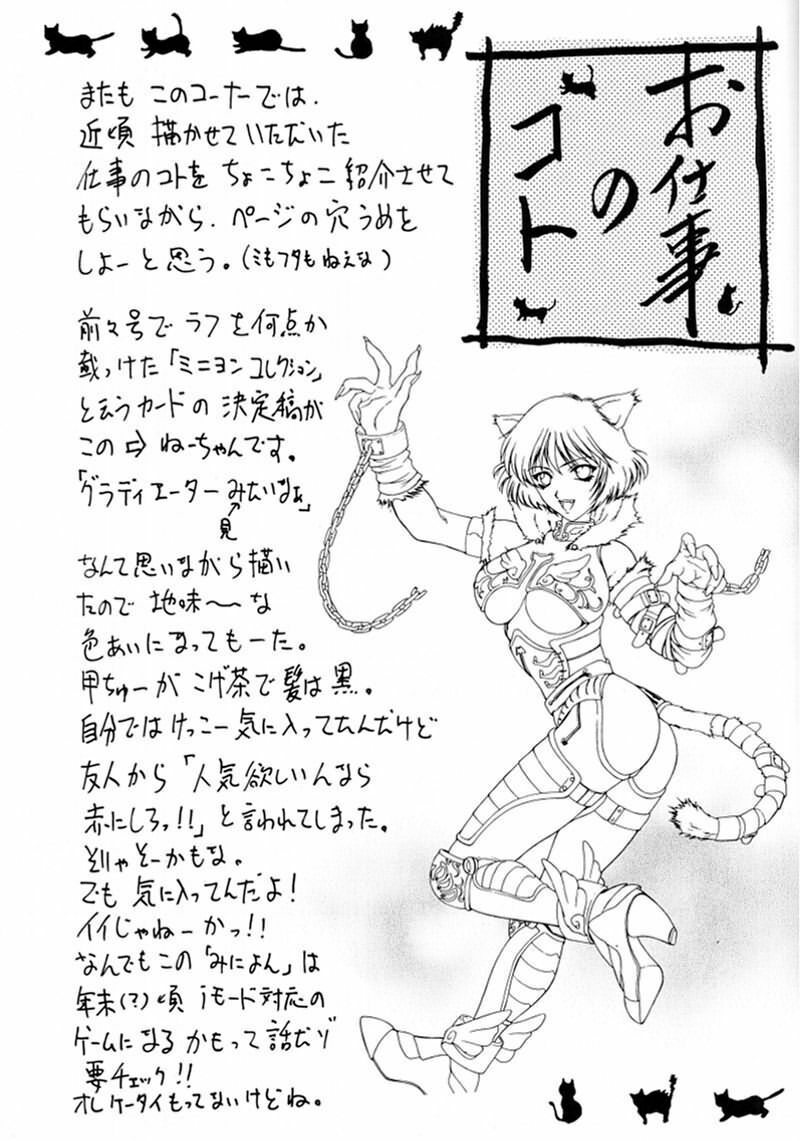 お仕事
の
コト
またも このコーナーでは、
近頃 描かせていただいた
仕事のコトを ちょこちょこ 紹介させて
もらいながら、ページの穴うめを
しよーと思う。(ミもフタもねえな)
前々号で ラフを何点か
載っけた「ミニヨンコレクション」
と云うカードの 決定稿が
この⇨ ねーちゃんです。
「グラディエーターみたいなぁ」
見
なんて思いながら描い
たので 地味〜な
色あいになってもーた。
甲ちゅーが こげ茶で髪は黒。
自分ではけっこー気に入ってたんだけど
友人から「人気欲しいんなら
赤にしろッ!!」と言われてしまった。
そりゃそーかもな。
でも 気に入ってんだよ!
イイじゃねーかっ!!
なんでもこの「みによん」は
年末(?)頃 iモード対応の
ゲームになるかもって話だゾ
要チェック!!
オレケータイもってないけどね。